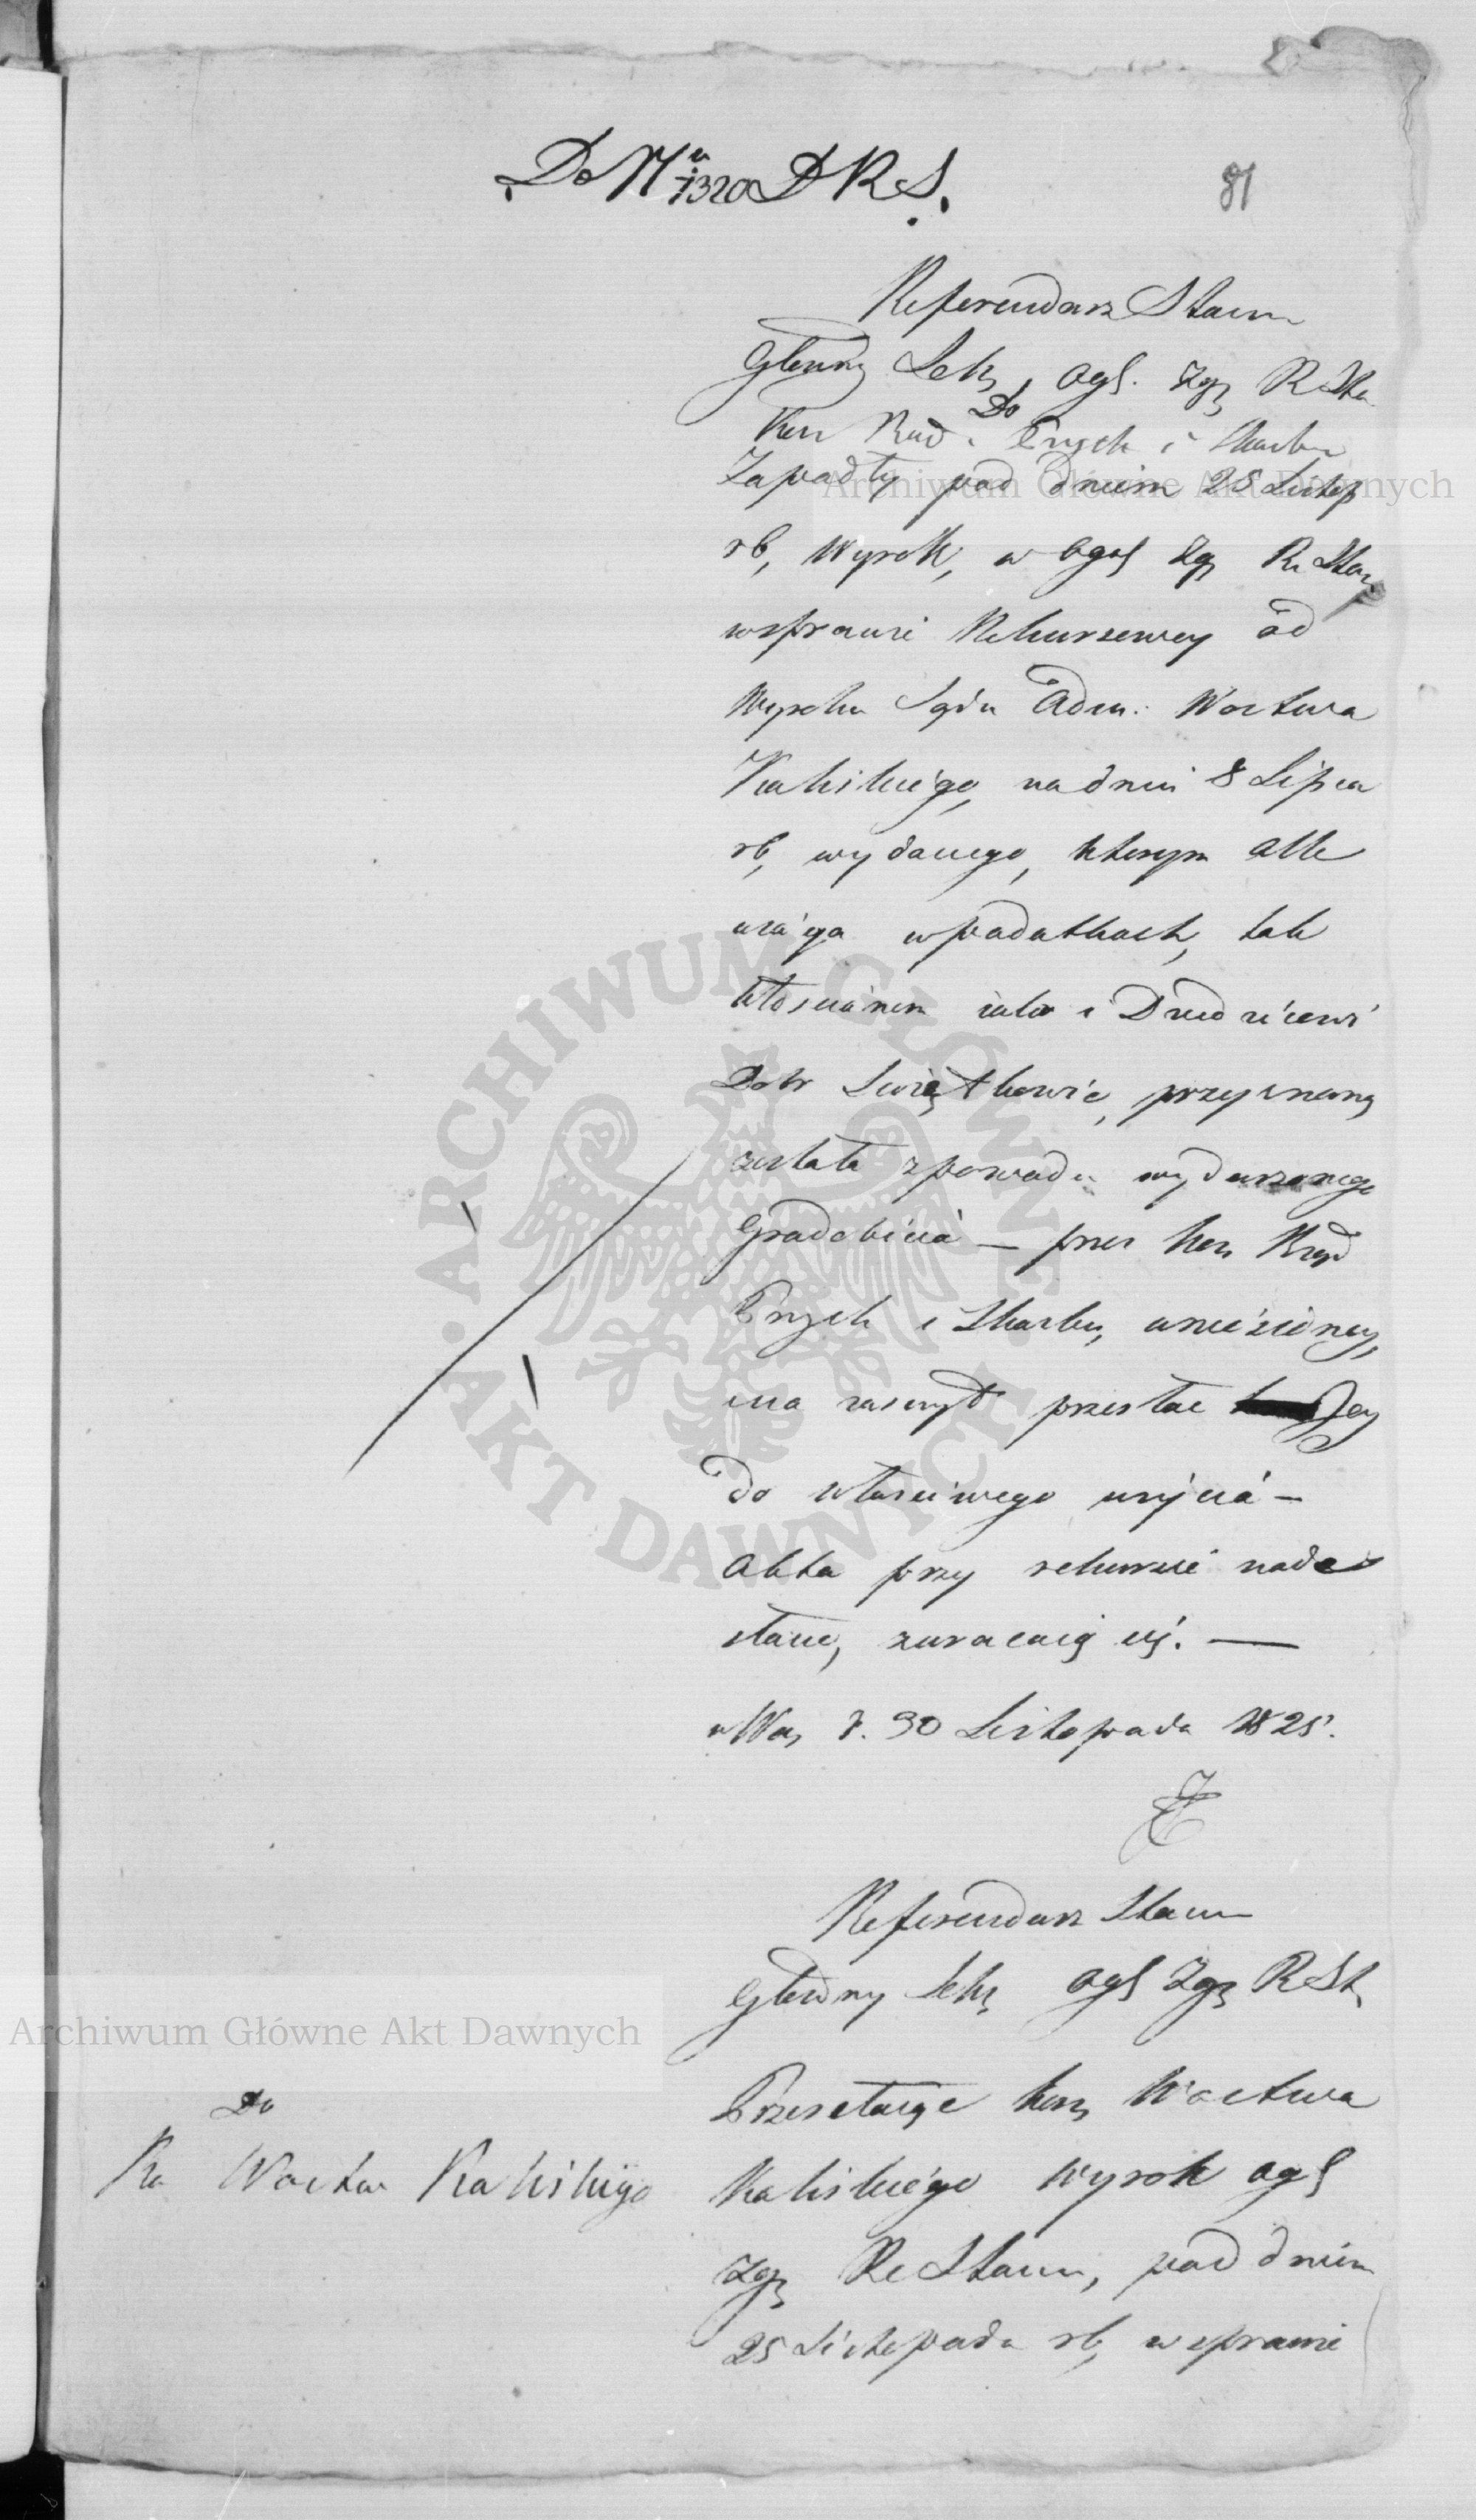 Do Nru 1320 D R S.
81
Referendarz Stanu
Główny Sekr, ogl. Zgr R Sta
Do
Kom Rząd. Przych i Skarbu
Zapadły pod dniem 25 Listop
rb, Wyrok, w ogól Zgr R. Stanu
wsprawie Rekursowey od
Wyroku Sądu Adm: Wodztwa
Kaliskiego, nadniu 8 Lipca
rb, wydanego, którym alle
wiacya wpodatkach, tak
Włościanom iako i Dziedzicowi
Dobr Swiątkowic, przyznaną
została zpowodu wydarzonego
Gradobicia — przez Kom Rząd
Przych i Skarbu, wniesioney,
ma zaszczyt przesłać Jey
do właściwego użycia —
Akta przy rekursie nade
słane, zwracaią się. —
w War, d. 30 Listopada 1825.
Referendarz Stanu
Główny Sekr ogl Zgr R St,
Przesełaiąc Kom, Wodztwa
Kaliskiego Wyrok ogl
Zgr R Stanu, pod dniem
25 Listopada rb, wsprawie
Do
Ko Wodztwa Kaliskiego
Archiwum Główne Akt Dawnych
Archiwum Główne Akt Dawnych
ARCHIWUM GŁÓWNE AKT DAWNYCH